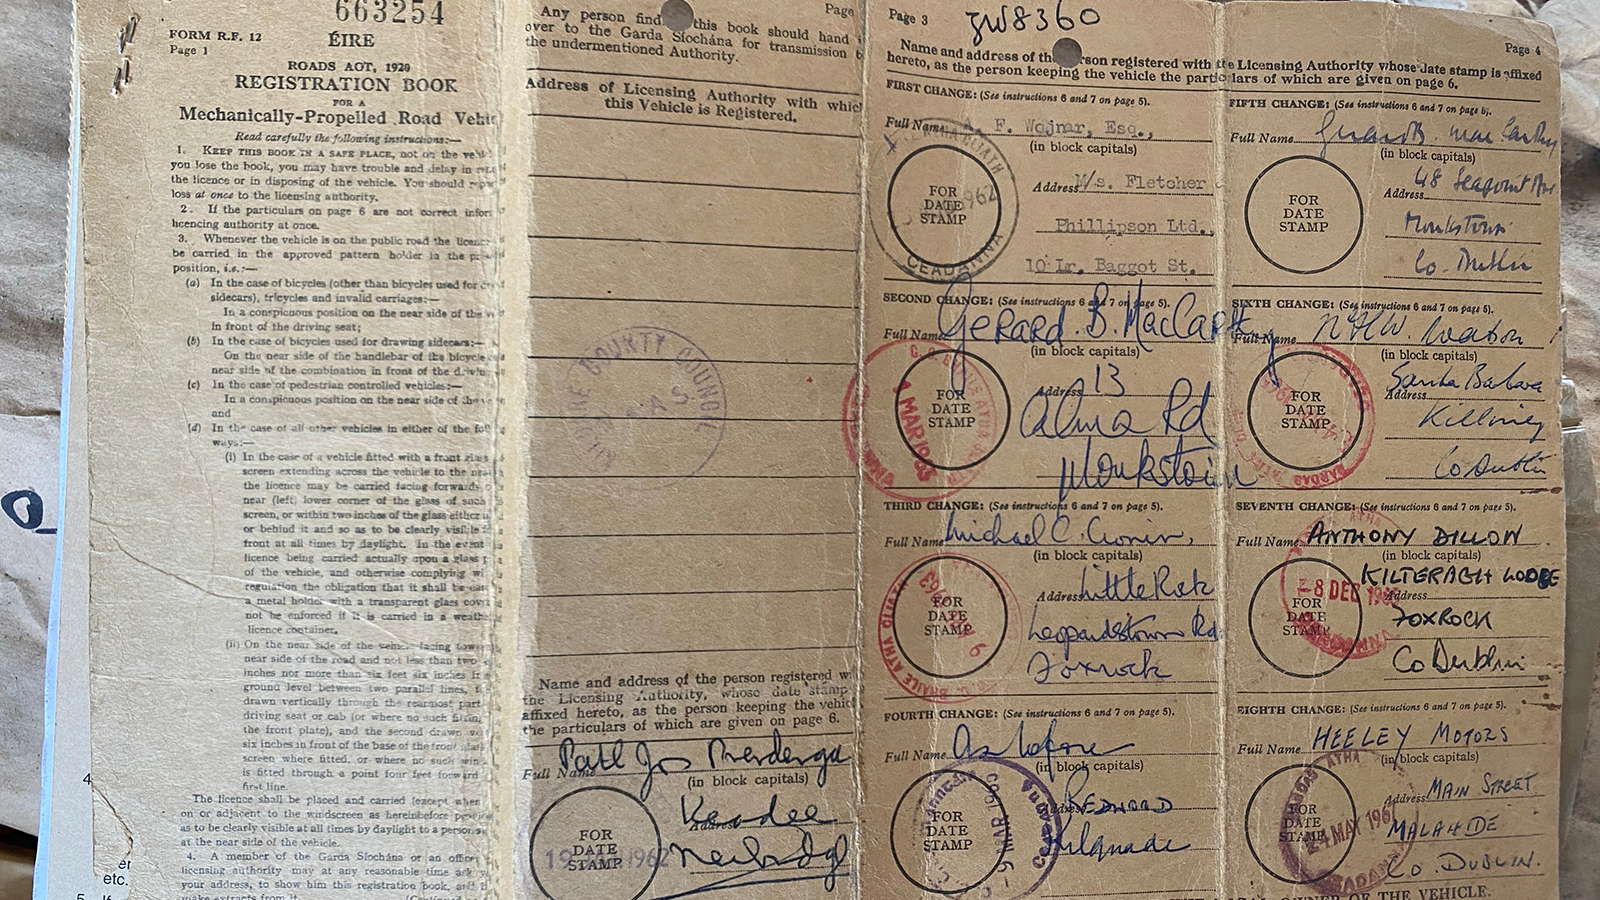 663254
FORM R.F. 12
Page 1
ÉIRE
ROADS ACT, 1920
REGISTRATION BOOK
FOR A
Mechanically-Propelled Road
Read carefully the following instructions:—
1. KEEP THIS BOOK IN A SAFE PLACE, not on the
you lose the book, you may have trouble and delay in
the licence or in disposing of the vehicle. You should
loss at once to the licensing authority.
2. If the particulars on page 6 are not correct
licencing authority at once.
3. Whenever the vehicle is on the public road the
be carried in the approved pattern holder in the
position, i.e.:—
(a) In the case of bicycles (other than bicycles used for
sidecars), tricycles and invalid carriages:—
In a conspicuous position on the near side of the
in front of the driving seat;
(b) In the case of bicycles used for drawing sidecars:—
On the near side of the handlebar of the bicycle
near side of the combination in front of the
(c) In the case of pedestrian controlled vehicles:—
In a conspicuous position on the near side of
and
(d) In the case of all other vehicles in either of the
ways:—
(i) In the case of a vehicle fitted with a front
screen extending across the vehicle to the
the licence may be carried facing forwards
near (left) lower corner of the glass of such
screen, or within two inches of the glass either
or behind it and so as to be clearly visible
front at all times by daylight. In the event
licence being carried actually upon a glass
of the vehicle, and otherwise complying
regulation the obligation that it shall be
a metal holder with a transparent glass
not be enforced if it is carried in a
licence container.
(ii) On the near side of the vehicle facing
near side of the road and not less than two
inches nor more than six feet six inches
ground level between two parallel lines,
drawn vertically through the rearmost part
driving seat or cab (or where no such
the front plate), and the second drawn
six inches in front of the base of the front
screen where fitted, or where no such
is fitted through a point four feet forward
first line.
The licence shall be placed and carried (except when
on or adjacent to the windscreen as hereinbefore
as to be clearly visible at all times by daylight to a
at the near side of the vehicle.
4. A member of the Garda Síochána or an
licensing authority may at any reasonable time ask
your address, to show him this registration book, and
make extracts from it.
Page
Any person this book should hand
over to the Garda Síochána for transmission
the undermentioned Authority.
Address of Licensing Authority with
this Vehicle is Registered.
COUNTY COUNCIL
Name and address of the person registered
the Licensing Authority, whose date stamp
affixed hereto, as the person keeping the
the particulars of which are given on page 6.
Full Name
(in block capitals)
Address
FOR
DATE
STAMP
1962
Page 3
ZW8360
Page 4
Name and address of the person registered with the Licensing Authority whose date stamp is affixed
hereto, as the person keeping the vehicle the particulars of which are given on page 6.
FIRST CHANGE: (See instructions 6 and 7 on page 5).
Full Name A. F. Wojnar, Esq.,
(in block capitals)
FOR
DATE
STAMP
1962
CEADANNA
Address M/s. Fletcher
Phillipson Ltd.,
10 Lr. Baggot St.
SECOND CHANGE: (See instructions 6 and 7 on page 5).
Full Name Gerard. B. MacCarthy
(in block capitals)
FOR
DATE
STAMP
1 MAR 1963
Address 13
Alma Rd
Monkstown
THIRD CHANGE: (See instructions 6 and 7 on page 5).
Full Name Michael C. Cronin,
(in block capitals)
FOR
DATE
STAMP
BHAILE ATHA CLIATH
Address Little Rock
Leopardstown Rd.
Foxrock
FOURTH CHANGE: (See instructions 6 and 7 on page 5).
Full Name As before
(in block capitals)
FOR
DATE
STAMP
Address REDWOOD
FIFTH CHANGE: (See instructions 6 and 7 on page 5).
Full Name Gerard B. MacCarthy
(in block capitals)
FOR
DATE
STAMP
Address 48 Seapoint Ave
Monkstown
Co. Dublin
SIXTH CHANGE: (See instructions 6 and 7 on page 5).
Full Name Watson
(in block capitals)
FOR
DATE
STAMP
Address Santa Barbara
Killiney
Co Dublin
SEVENTH CHANGE: (See instructions 6 and 7 on page 5).
Full Name ANTHONY DILLON
(in block capitals)
FOR
DATE
STAMP
-8 DEC
KILTERAGH LODGE
Address
FOXROCK
Co Dublin
EIGHTH CHANGE: (See instructions 6 and 7 on page 5).
Full Name HEELEY MOTORS
(in block capitals)
FOR
DATE
STAMP
24 MAY
Address MAIN STREET
MALAHIDE
Co. DUBLIN.
OF THE VEHICLE.
4
etc.
5.